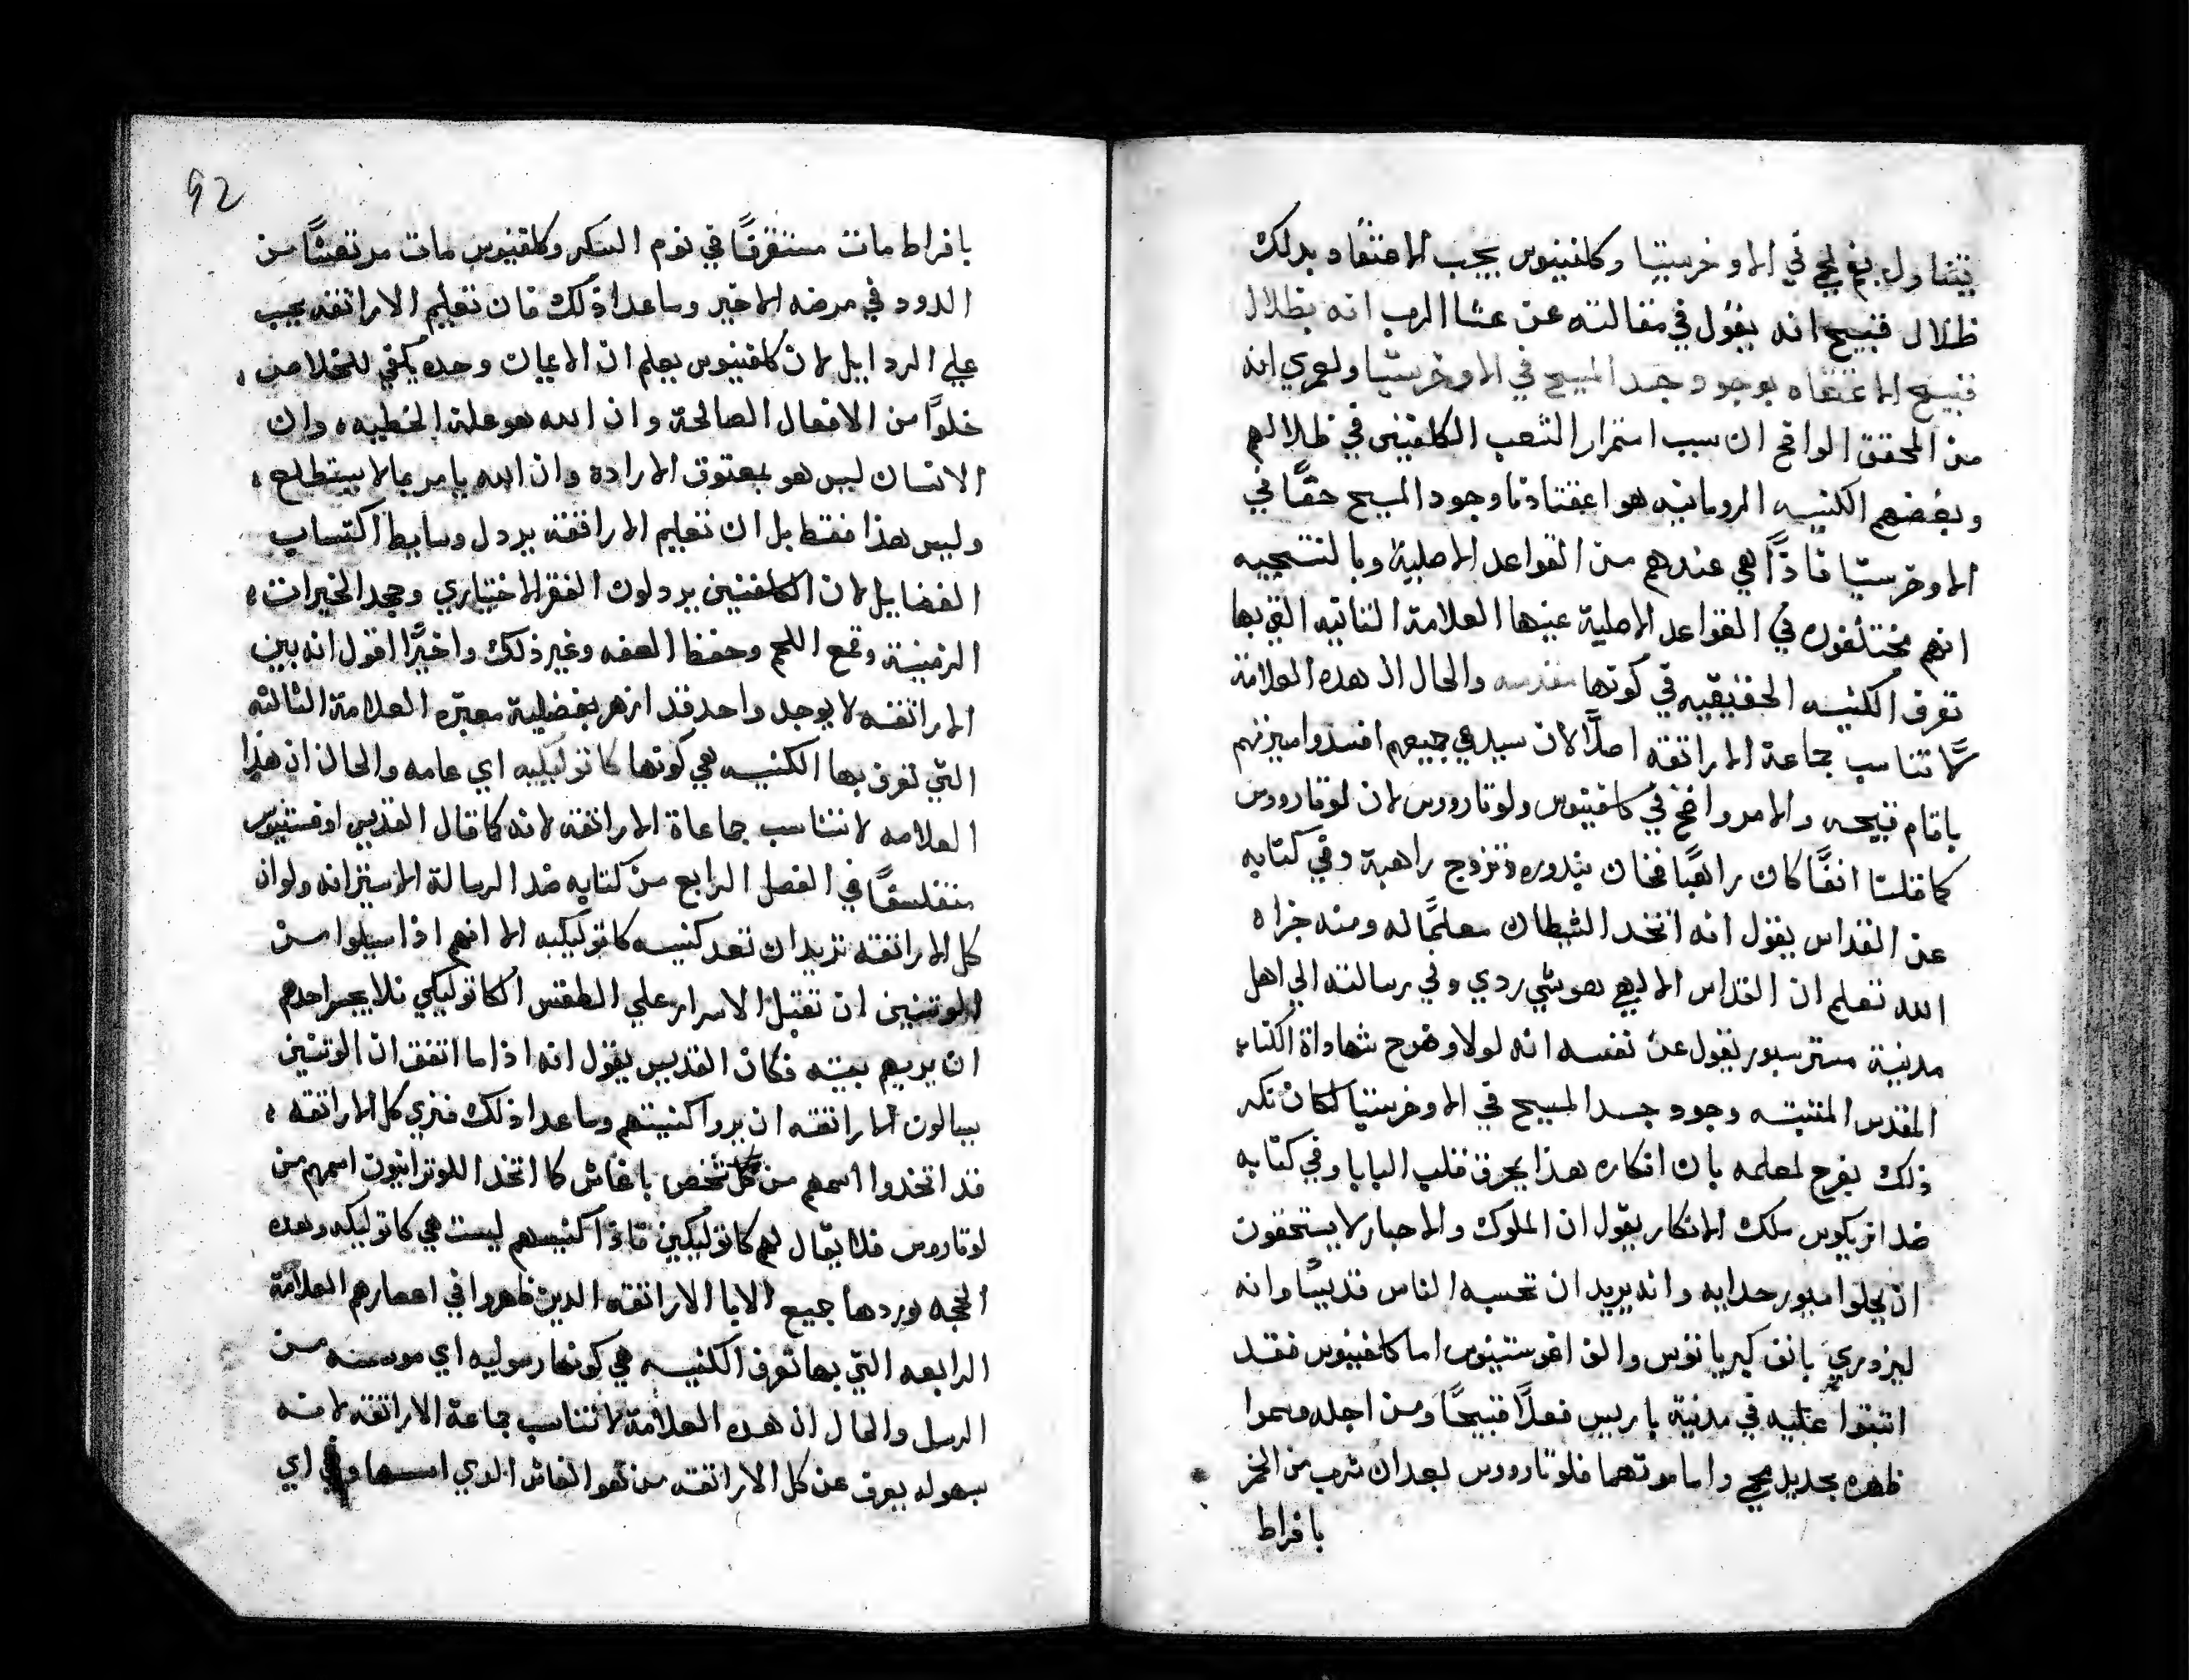 يتناول بفم لحمي في الاوخرستيا وكلفينوس يجب الاعتقاد بدلك
ظلال قبيح انه يقول في مقالته عن عشا الرب انه بظلال
قبيح الاعتقاد بوجود جسد المسيح في الاوخرستيا ولعمري انه
من المحقق الواقح ان سبب استمرار الشعب الكلفينين في ظلالهم
وبغضهم الكنيسه الرومانيه هو اعتقادنا وجود المسيح حقًا في
الاوخرستيا فاذًا هي عندهم من القواعد الاصلية وبالنتيجيه
انهم مختلفون في القواعد الاصلية عينها العلامة التانيه التي بها
تعرف الكنيسه الحقيقيه في كونها مقدسه والحال ان هده العلامة
لا تناسب جماعة الاراتقه اصلًا لان سيدعي جميعهم افسدوا سيرتهم
باتام قبيحه والامر واضح في كلفينوس ولوتارووس لان لوتارووس
كما قلنا انفًا كان راهبًا فخان بندوره وتزوج راهبة وفي كتابه
عن القداس يقول انه اتخد الشيطان معلمًا له ومنه جزاه
الله تعلم ان القداس الالهي هو شي ردي وفي رسالته الي اهل
مدنية ستر سبور يقول عن نفسه انه لولا وضوح شهاداة الكتاب
المقدس المتبته وجود جسد المسيح في الاوخرستيا لكان نكر
ذلك بفرح لعلمه بان انكاره هذا يحرق قلب البابا وفي كتابه
ضد انريكوس ملك الانكار يقول ان الملوك والاحبار لا يستحقون
ان يحلوا سيور حدايه وانه يريد ان تحسبه الناس قديسًا وانه
ليزدري بالف كيريانوس والف اغوستينوس اما كلفينوس فقد
اتبتوا عليه في مدنية باريس فعلًا قبيحًا ومن اجله وسموا
ظهره بحديد محمي واما موتهما فلوتارووس بعد ان شرب من الخمر
بافراط
92
بافراط مات مستغرقًا في نوم السكر وكلفينوس مات مرتعشًا من
الدود في مرضه الاخير وماعدا ذلك فان تعليم الاراتقه يجب
علي الردايل لان كلفينوس يعلم ان الايمان وحده يكفي للخلاص
خلوًا من الافعال الصالحة وان الله هو علة الخطيه وان
الانسان ليس هو بمعتوق الارادة وان الله يامر بما لا يستطاع
وليس هذا فقط بل ان تعليم الاراتقة يردل وسايط اكتساب
الفضايل لان الكلفنيين يردلون الفقر الاختياري وجحد الخيرات
الزمينية وقمع اللحم وحفظ العفه وغير ذلك واخيرًا اقول انه بين
الاراتقه لا يوجد واحد قد ازهر بفضيلة معتبره العلامة التالته
التي تعرف بها الكنيسه هي كونها كاتوليكيه اي عامه والحال ان هذا
العلامه لا تناسب جماعاة الاراتقه لانه كما قال القديس اوغستنيوس
متفلسفًا في الفصل الرابع من كتابه ضد الرسالة الاستزانه ولوان
كل الاراتقه تريد ان تعد كنيسه كاتوليكيه الا انهم اذا سيلوا من
الوتنيين ان تقبل الاسرار علي الطقس الكاتوليكي فلا يجسر احدهم
ان يريهم بيته فكان القديس يقول انه اذا ما اتفق ان الوتنيين
يسالون الاراتقه ان يروا كنيستهم وماعدا ذلك فنري كل الاراتقه
قد اتخدوا اسمهم من كل شخص باغاش كما اتخدا اللوترانيون اسمهم من
لوتاروس فلا يقال لهم كاتوليكين فاذًا كنيسهم ليست هي كاتوليكه وهده
الحجه يوردها جميع الابا الاراتقه الدين ظهروا في اعصارهم العلامة
الرابعه التي بها تعرف الكنيسه هي كونها رسوليه اي موسسه من
الرسل والحال ان هده العلامة لا تناسب جماعة الاراتقه لانه
بسهوله يعرف عن كل الاراتقه من هو الغاش الدي اسسها وفي اي